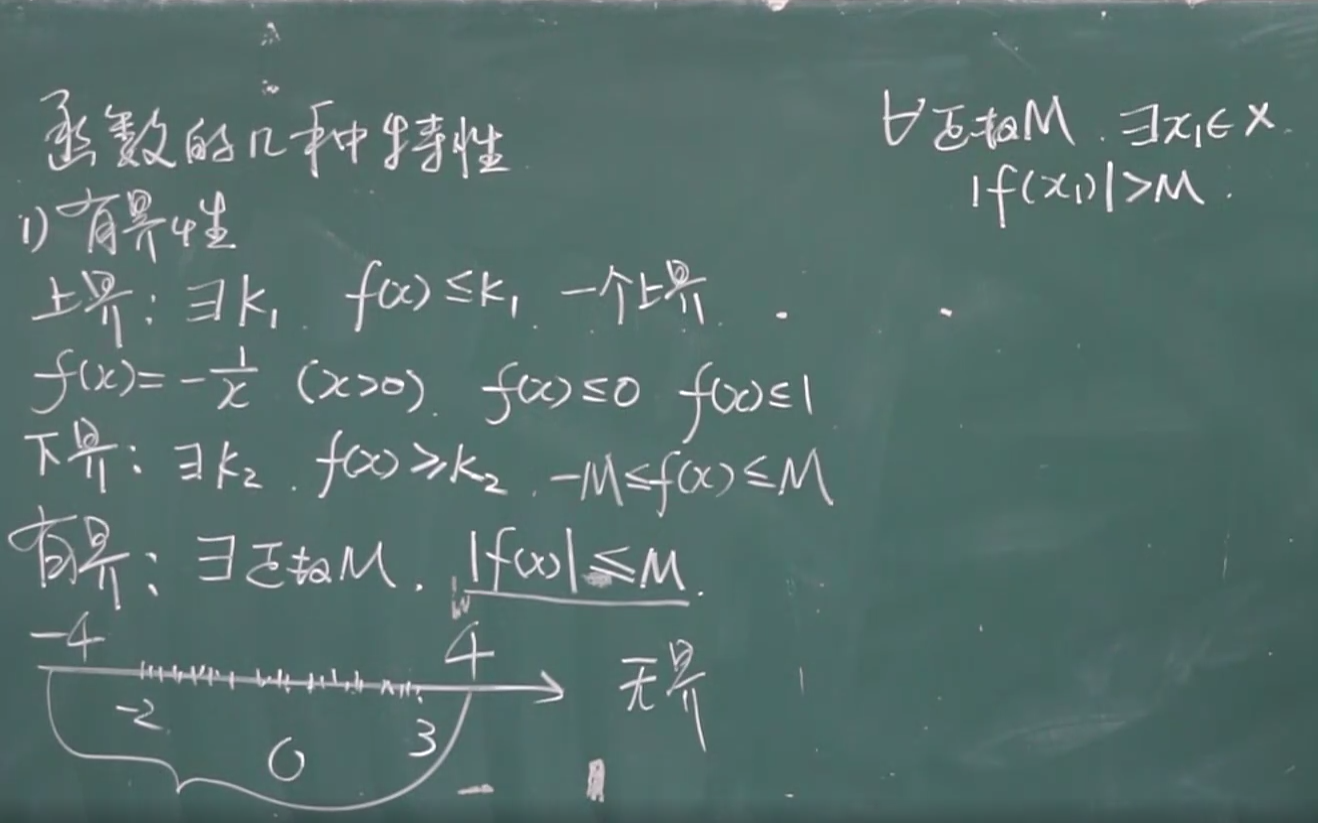 函数的几种特性
1) 有界性
上界: ∃k₁. f(x)≤k₁. 一个上界.
f(x)=-1/x (x>0). f(x)≤0 f(x)≤1
下界: ∃k₂. f(x)≥k₂. -M≤f(x)≤M
有界: ∃正数M. |f(x)|≤M.
-4 4
-2 0 3
无界
∀正数M. ∃x₁∈X.
|f(x₁)|>M.